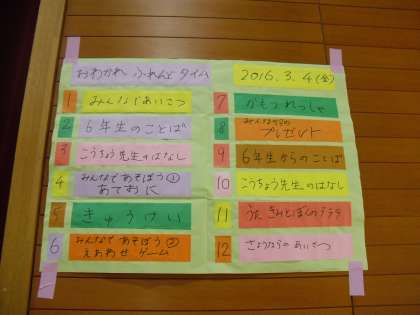 おわかれ ふれんど タイム
2016.3.4(金)
1 みんなであいさつ
2 6年生のことば
3 こうちょう先生のはなし
4 みんなであそぼう①
あておに
5 きゅうけい
6 みんなであそぼう②
えあわせゲーム
7 かもつれっしゃ
8 みんなからの
プレゼント
9 6年生からのことば
10 こうちょう先生のはなし
11 うた きみとぼくのラララ
12 さようならの あいさつ